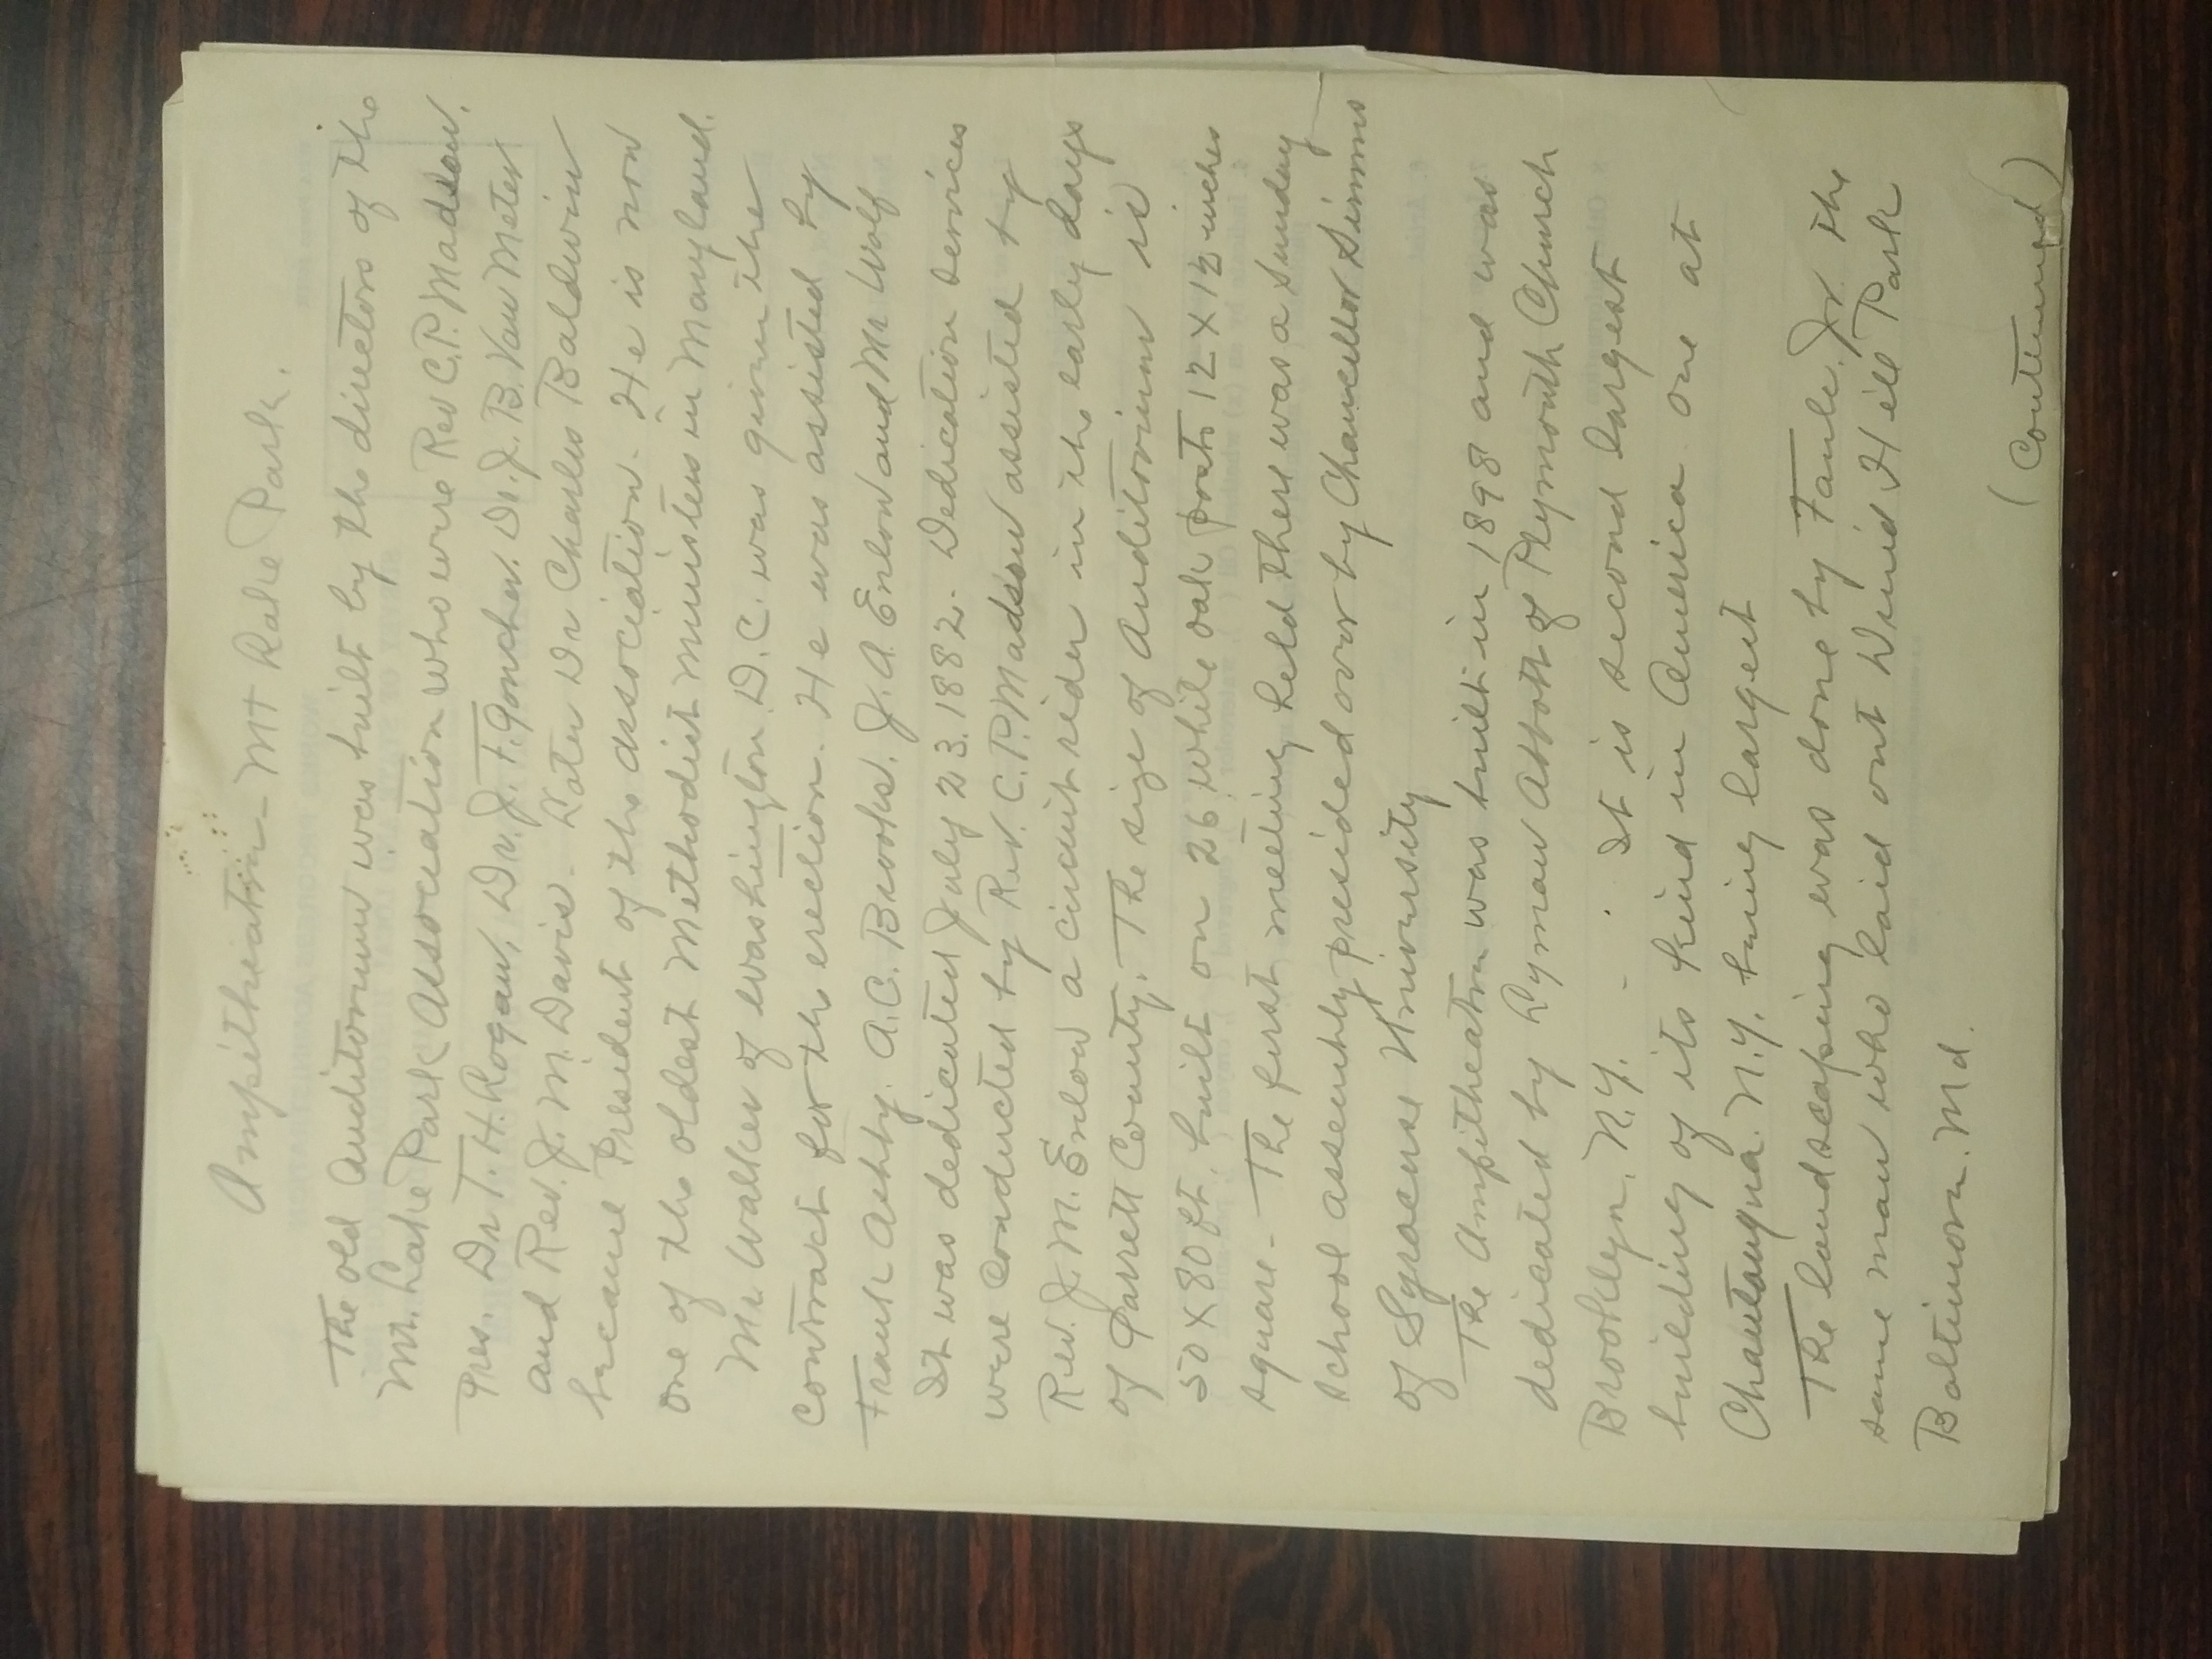 Ampitheatre - Mt Lake Park.
The old Auditorium was built by the directors of the
Mt. Lake Park Association who were Rev C.P. Madson,
Pres. Dr T. H. Logan, Dr. J. F. Goucher. Dr. J. B. Van Meter
and Rev. J. M. Davis. Later Dr Charles Baldwin
became President of the association. He is now
one of the oldest Methodist ministers in Maryland.
Mr. Walker of Washington D.C. was given the
contract for the erection. He was assisted by
Frank Ashby. A.C. Brooks. J. A. Enlow and Mr Wolf
It was dedicated July 23. 1882. Dedication services
were conducted by Rev. C. P. Madson assisted by
Rev. J. M. Enlow a circuit rider in the early days
of Garrett County. The size of Auditorium is
50 X 80 ft. built on 26 white oak posts 12 X 12 inches
square - The first meeting held there was a Sunday
School assembly presided over by Chancellor Simms
of Syracuse University
The Ampitheatre was built in 1898 and was
dedicated by Lyman Abbott of Plymouth Church
Brooklyn, N.Y. - It is second largest
building of its kind in America one at
Chautauqua. N.Y. being largest
The landscaping was done by Faule. Jr. the
same man who laid out Druid Hill Park
Baltimore. Md.
(Continued)